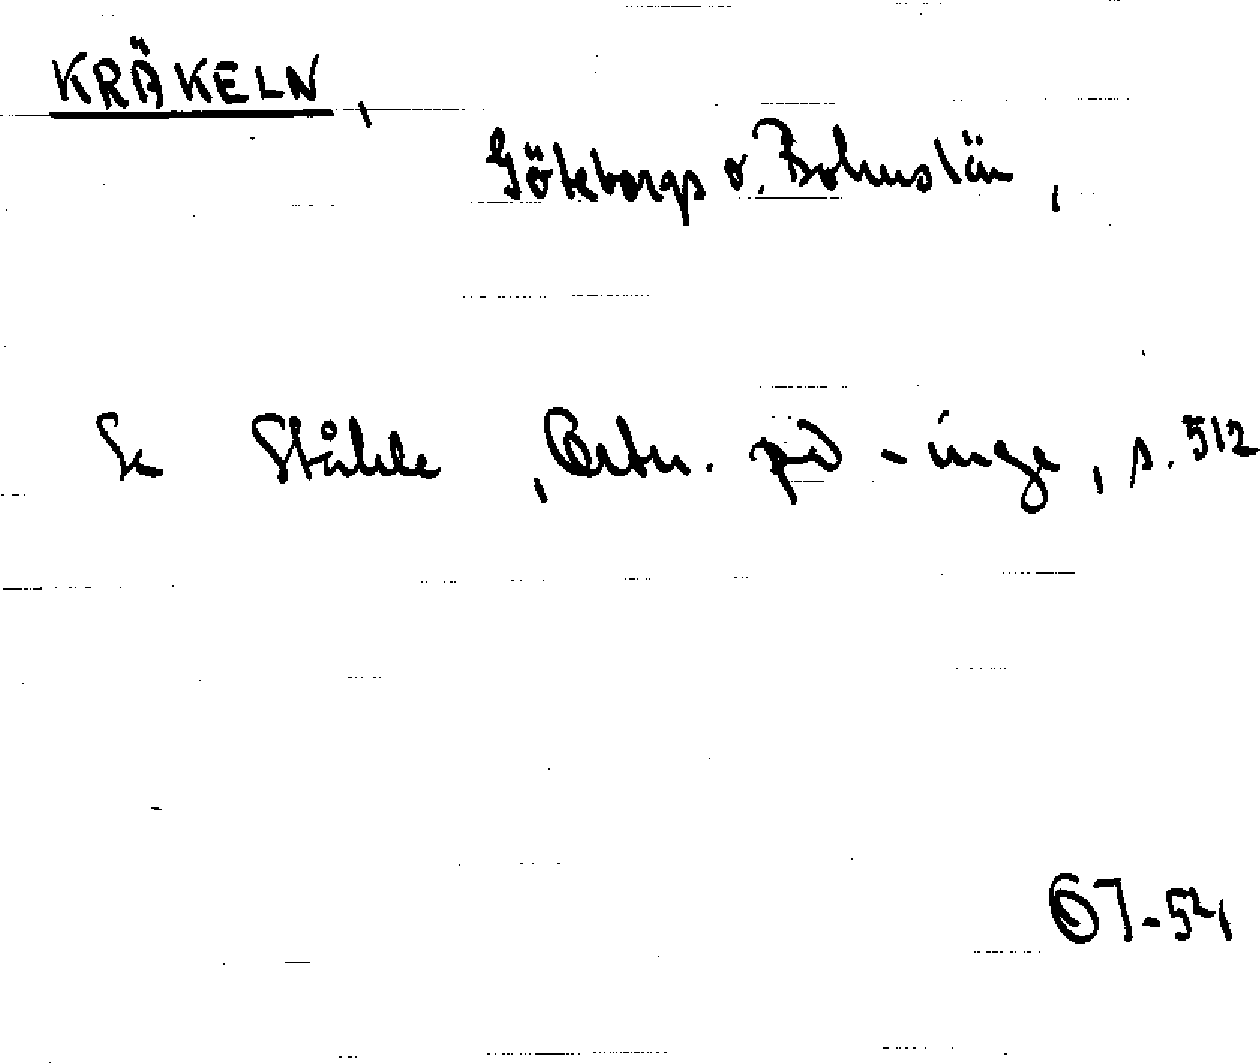 KRÄKELN,
Göteborgs o. Bohuslän,
Se Ståhle, Ortn. på -inge, s. 512